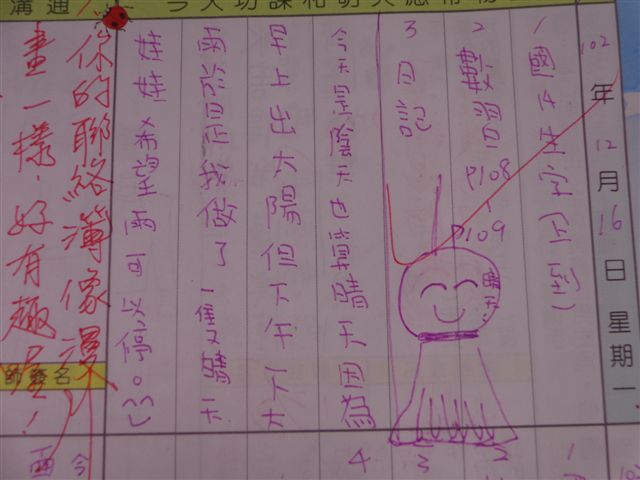 溝通
102年12月16日星期一
1國
生字
2數習P108
P109
3日記
晴天
今天是陰天也算晴天因為
早上出太陽但下午下大
雨於是我做了一隻晴天
娃娃希望雨可以停。
你的聯絡簿像漫
畫一樣,好有趣
師簽名
1
2
3
4
今